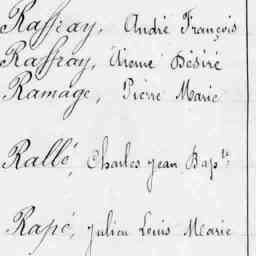 Raffray, André François
Raffray, Désiré
Ramage, Pierre Marie
Rallé, Charles Jean Bap^te
Rapé, Julien Louis Marie